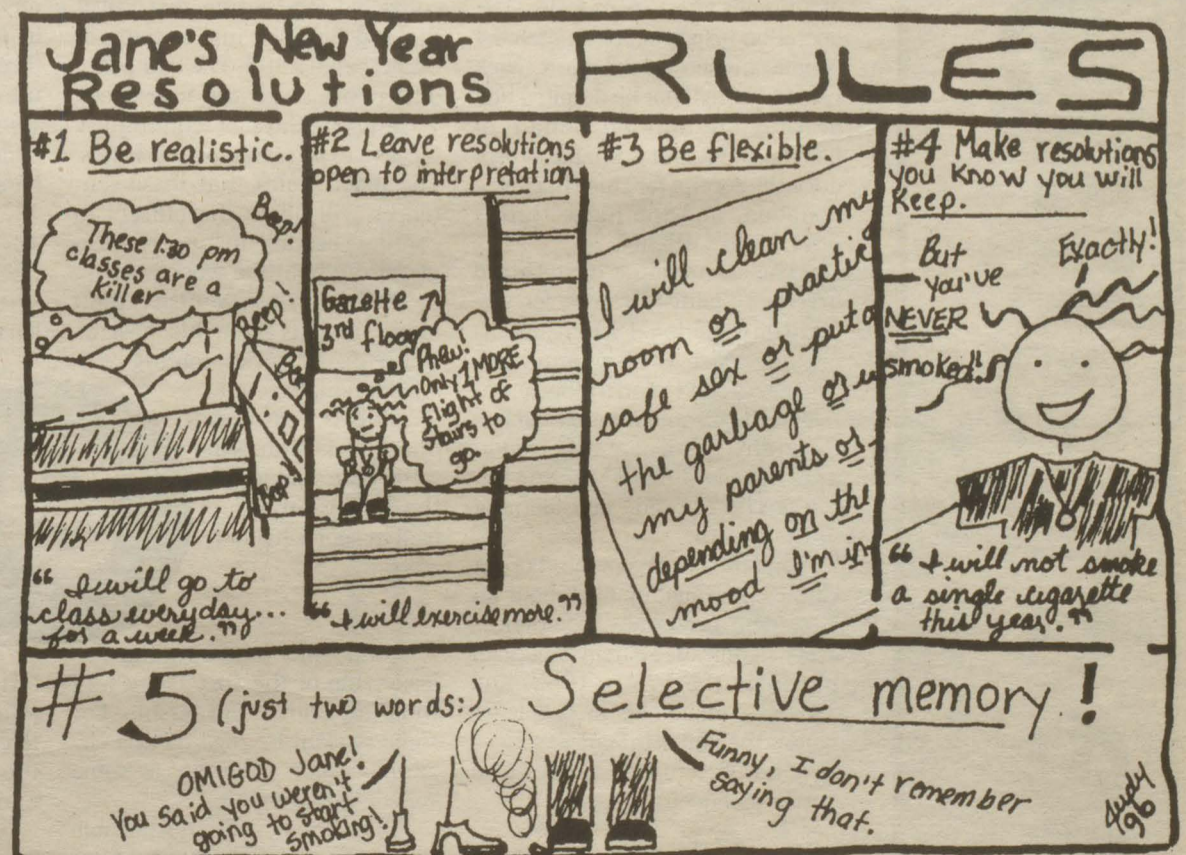 Jane's New Year
Resolutions
RULES
#1 Be realistic.
Beep!
These 1:30 pm
classes are a
killer
Beep!
Beep!
"I will go to
class everyday...
for a week."
#2 Leave resolutions
open to interpretation.
Gazette
3rd floor
Phew!
Only 1 MORE
flight of
stairs to
go.
"I will exercise more."
#3 Be flexible.
I will clean my
room or practic
safe sex or put o
the garbage or
my parents or
depending on the
mood I'm in
#4 Make resolutions
you know you will
keep.
But
you've
NEVER
smoked!!
Exactly!
"I will not smoke
a single cigarette
this year."
#5 (just two words:) Selective memory!
OMIGOD Jane!
You said you weren't
going to start
smoking!
Funny, I don't remember
saying that.
Judy
96